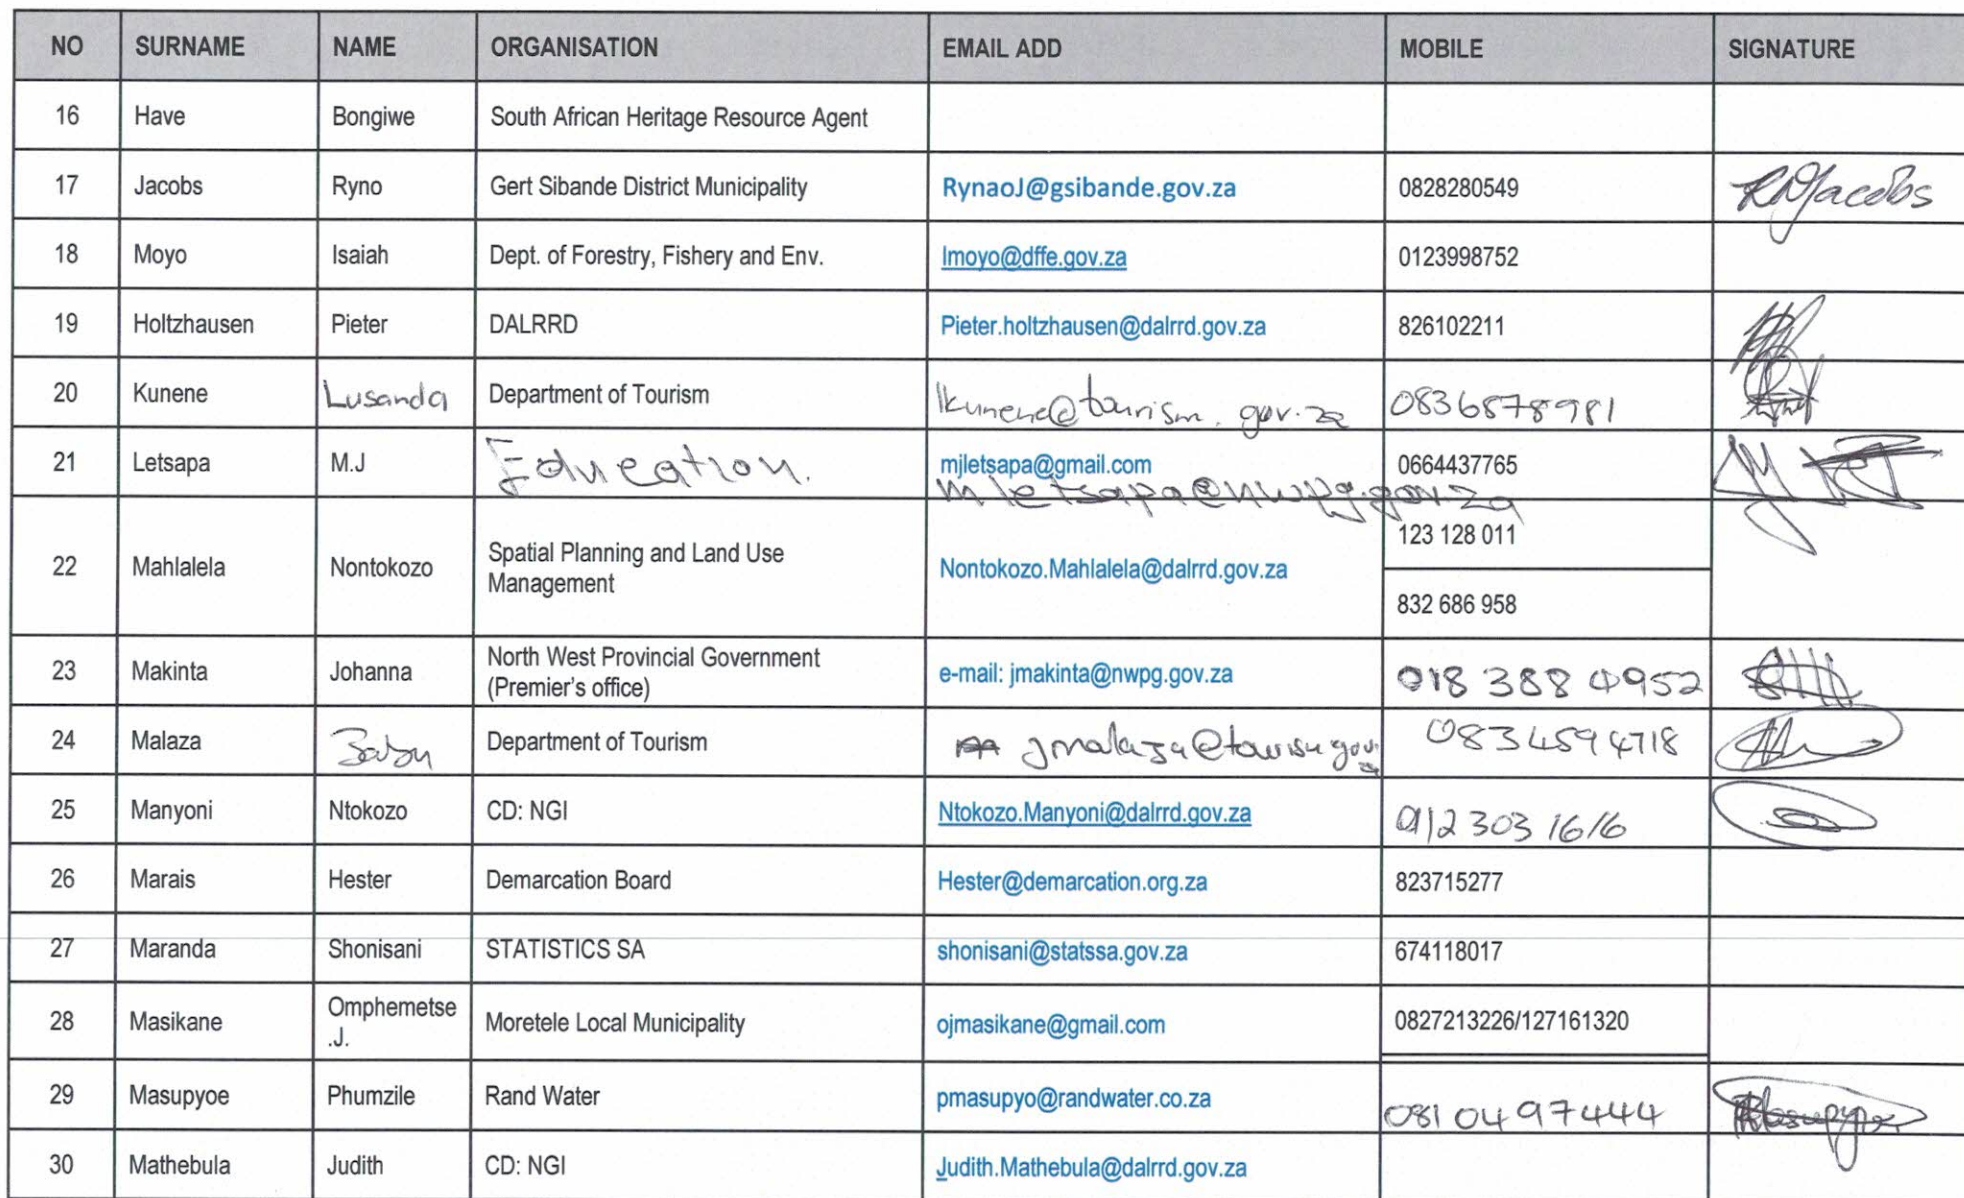 NO SURNAME NAME ORGANISATION EMAIL ADD MOBILE SIGNATURE
16 Have Bongiwe South African Heritage Resource Agent
17 Jacobs Ryno Gert Sibande District Municipality RynaoJ@gsibande.gov.za 0828280549 RDJacobs
18 Moyo Isaiah Dept. of Forestry, Fishery and Env. Imoyo@dffe.gov.za 0123998752
19 Holtzhausen Pieter DALRRD Pieter.holtzhausen@dalrrd.gov.za 826102211
20 Kunene Lusanda Department of Tourism lkunene@tourism.gov.za 0836878981
21 Letsapa M.J Education. mjletsapa@gmail.com 0664437765
mletsapa@nwpg.gov.za
123 128 011
22 Mahlalela Nontokozo Spatial Planning and Land Use Nontokozo.Mahlalela@dalrrd.gov.za
Management
832 686 958
23 Makinta Johanna North West Provincial Government e-mail: jmakinta@nwpg.gov.za 018 388 4952
(Premier's office)
24 Malaza Department of Tourism 0834594718
25 Manyoni Ntokozo CD: NGI Ntokozo.Manyoni@dalrrd.gov.za 012 303 1616
26 Marais Hester Demarcation Board Hester@demarcation.org.za 823715277
27 Maranda Shonisani STATISTICS SA shonisani@statssa.gov.za 674118017
28 Masikane Omphemetse Moretele Local Municipality ojmasikane@gmail.com 0827213226/127161320
.J.
29 Masupyoe Phumzile Rand Water pmasupyo@randwater.co.za 0810497444
30 Mathebula Judith CD: NGI Judith.Mathebula@dalrrd.gov.za